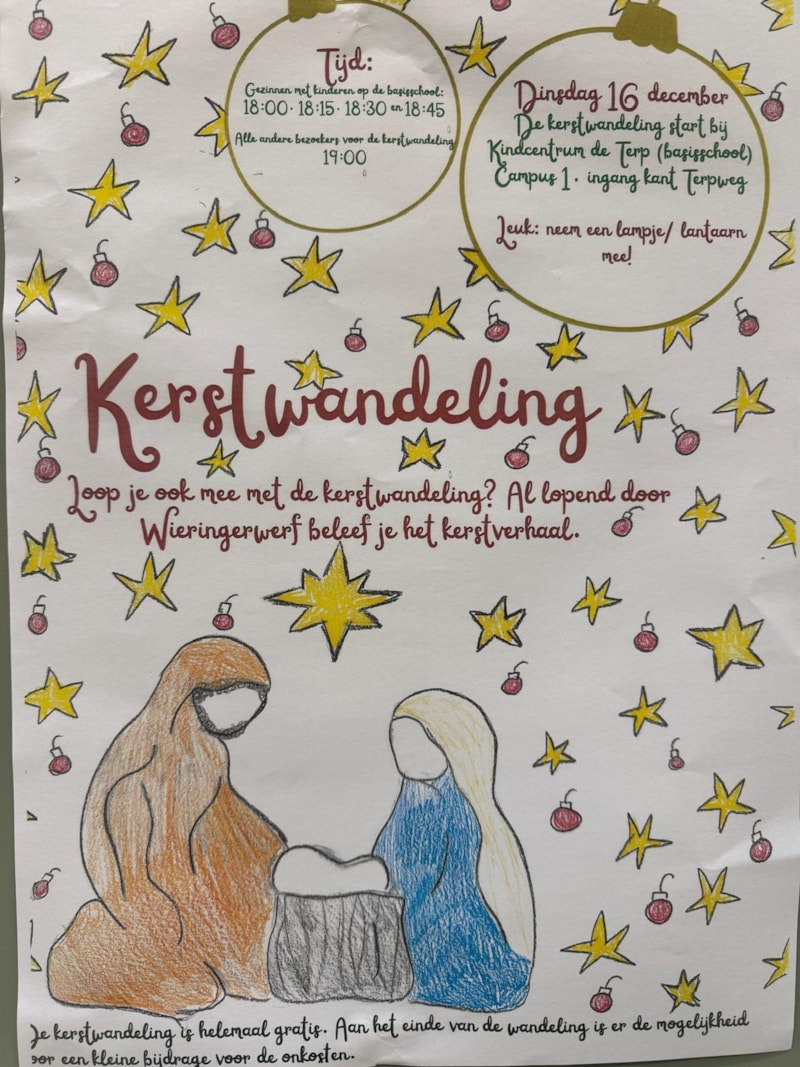 Tijd:
Gezinnen met kinderen op de basisschool:
18:00 · 18:15 · 18:30 en 18:45
Alle andere bezoekers voor de kerstwandeling
19:00
Dinsdag 16 december
De kerstwandeling start bij
Kindcentrum de Terp (basisschool)
Campus 1 · ingang kant Terpweg
Leuk: neem een lampje/ lantaarn
mee!
Kerstwandeling
Loop je ook mee met de kerstwandeling? Al lopend door
Wieringerwerf beleef je het kerstverhaal.
kerstwandeling is helemaal gratis. Aan het einde van de wandeling is er de mogelijkheid
een kleine bijdrage voor de onkosten.